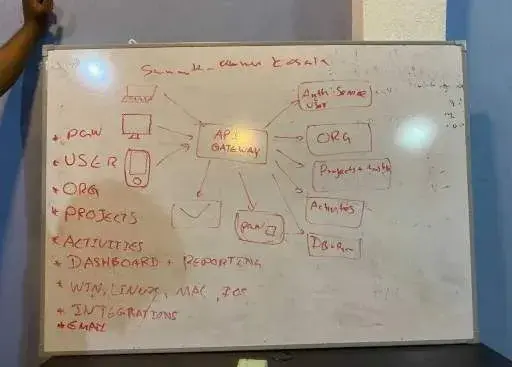 API
GATEWAY
Auth Service
USER
ORG
Projects + tasks
Activities
PGW
* PGW
* USER
* ORG
* PROJECTS
* ACTIVITIES
* DASHBOARD + REPORTING
* WIN, LINUX, MAC, IOS
* INTEGRATIONS
* EMAIL